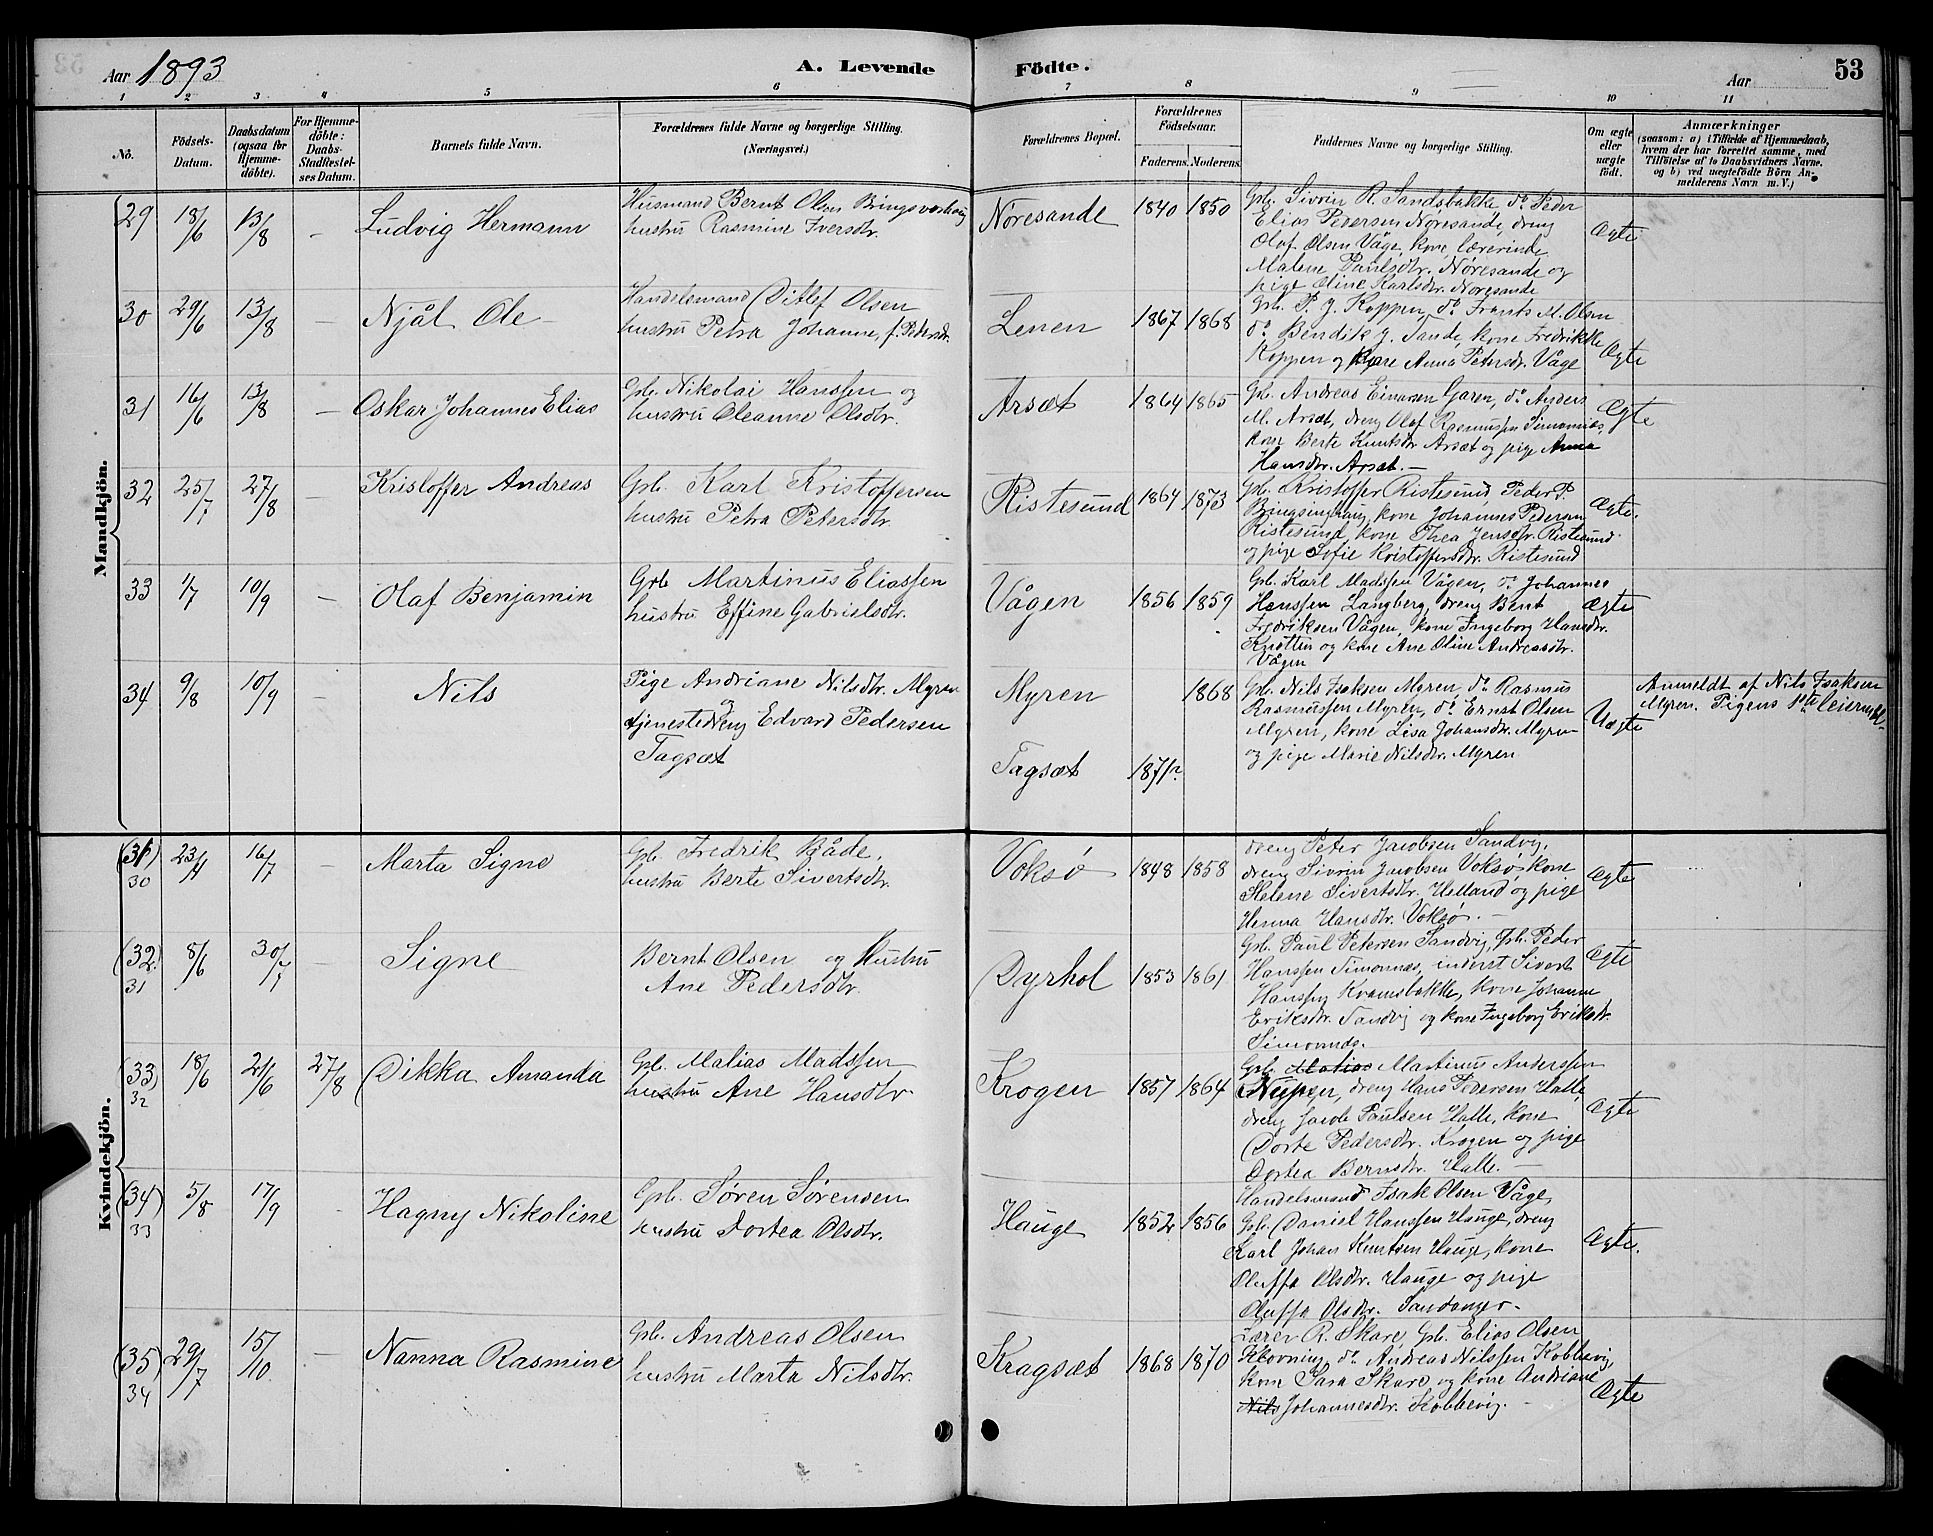 Aar 1893
A. Levende
Födte.
Aar
53
1 2 3 4 5 6 7 8 9 10 11
No.
Födsels-Datum.
Daabsdatum (ogsaa for Hjemme-döbte).
For Hjemme-döbte: Daabs-Stadfæstel-ses Datum.
Barnets fulde Navn.
Forældrenes fulde Navne og borgerlige Stilling.
(Næringsvei.)
Forældrenes Bopæl.
Forældrenes Födselsaar.
Faderens. Moderens.
Faddernes Navne og borgerlige Stilling.
Om ægte eller uægte födt.
Anmærkninger
(saasom: a) i Tilfælde af Hjemmedaab,
hvem der har forrettet samme, med
Tilföielse af to Daabsvidners Navne.
og b) ved uægtefödte Börn An-
melderens Navn m. V.)
Mandkjön.
29 18/6 13/8 - Ludvig Hermann
Husmand Bernt Olsen
hustru Rasmine Iversdtr.
Nøresande 1840 1850
Gsb. Sivrin R. Sandsbakke, do Peder
Elias Pedersen Nøresande, dreng
Olaf Olsen Våge, kone lærerinde
Malene Paulsdtr. Nøresande og
pige Oline Karlsdtr. Nøresande
Ægte
30 29/6 13/8 - Njål Ole -
Handelsmand Ditlef Olsen
hustru Petra Johanne, f. Pedersdtr.
Lenen 1867 1868
Gsb. P. J. Koppen, do Frants M. Olsen
do Bendik J. Sande, kone Fredrikke
Koppen og kone Anna Petersdtr Våge
Ægte
31 16/6 13/8 - Oskar Johannes Elias
Gsb. Nikolai Hanssen og
hustru Oleanne Olsdtr.
Arsæt 1864 1865
Gsb. Andreas Einarsen Garen, do Anders
M. Arsæt, dreng Olaf Rasmussen Simonnæs,
kone Berte Knutsdtr Arsæt og pige Anna
Hansdtr. Arsæt. -
Ægte
32 25/7 27/8 - Kristoffer Andreas
Gsb. Karl Kristoffersen
hustru Petra Petersdtr.
Ristesund 1864 1873
Gsb. Kristoffer Ristesund, Peder P.
Bringsinghaug, kone Johannes Pedersen
Ristesund, kone Thea Jensdtr. Ristesund
og pige Sofie Kristoffersdtr. Ristesund
Ægte.
33 1/7 10/9 - Olaf Benjamin
Gsb Martinus Eliassen
hustru Effine Gabrielsdtr.
Vågen 1856 1859
Gsb. Karl Madssen Vågen, do Johannes
Hanssen Langberg, dreng Bent
Fredriksen Vågen, kone Ingeborg Hansdtr.
Knotten og kone Ane Oline Andreasdtr.
Vågen
Ægte
34 9/8 10/9 - Nils
Pige Andriane Nilsdtr. Myren
og
tjenestedreng Edvard Pedersen
Tagsæt
Myren 1868
Tagsæt 1871?
Gsb. Nils Isaksen Myren, do Rasmus
Rasmussen Myren, do Ernst Olsen
Myren, kone Lisa Johansdtr. Myren
og pige Marie Nilsdtr. Myren
Uægte
Anmeldt af Nils Isaksen
Myren. Pigens 1ste leiermål
Kvindekjön.
(31) 30 23/4 16/7 - Marta Signe
Gsb. Fredrik Både,
hustru Berte Sivertsdtr.
Voksø 1848 1858
dreng Peter Jacobsen Sandvig,
dreng Sivrin Jacobsen Voksø, kone
Helene Sivertsdtr. Helland og pige
Henna Hansdtr. Voksø. -
Ægte
(32) 31 8/6 30/7 - Signe
Bernt Olsen og Hustru
Ane Pedersdtr.
Dyrhol 1853 1861
Gsb. Paul Petersen Sandvig, Gsb. Peder
Hanssen Simonnæs, inderst Sivert
Hanssen Kvamsbakke, kone Johanne
Eriksdtr. Sandvig og kone Ingeborg Eriksdtr.
Simonnæs.
Ægte
(33) 32 18/6 21/6 27/8 Dikka Amanda
Gsb. Matias Madssen
hustru Ane Hansdtr
Krogen 1857 1864
Gsb. Matias Martinus Anderssen
Nupen, dreng Hans Pedersen Halle
dreng Jacob Paulsen Halle, kone
Dorte Pedersdtr. Krogen og pige
Dortea Berntsdtr. Halle. -
Ægte
(34) 33 5/8 17/9 - Hagny Nikoline
Gsb. Søren Sørensen
hustru Dortea Olsdtr.
Hauge 1852 1856
Handelsmand Isak Olsen Våge,
Gsb. Daniel Hanssen Hauge, dreng
Karl Johan Knutsen Hauge, kone
Oluffa Olsdtr. Hauge og pige
Oluffa Olsdtr. Sandanger.
Ægte.
(35) 34 29/7 15/10 - Nanna Rasmine
Gsb. Andreas Olsen
hustru Marta Nilsdtr.
Kragsæt 1868 1870
Lærer R. Skare, Gsb. Elias Olsen
Kløvning, do Andreas Nilssen Kobbevig,
kone Sara Skare og kone Andriane
Nils Johannesdtr. Kobbevig. -
Ægte